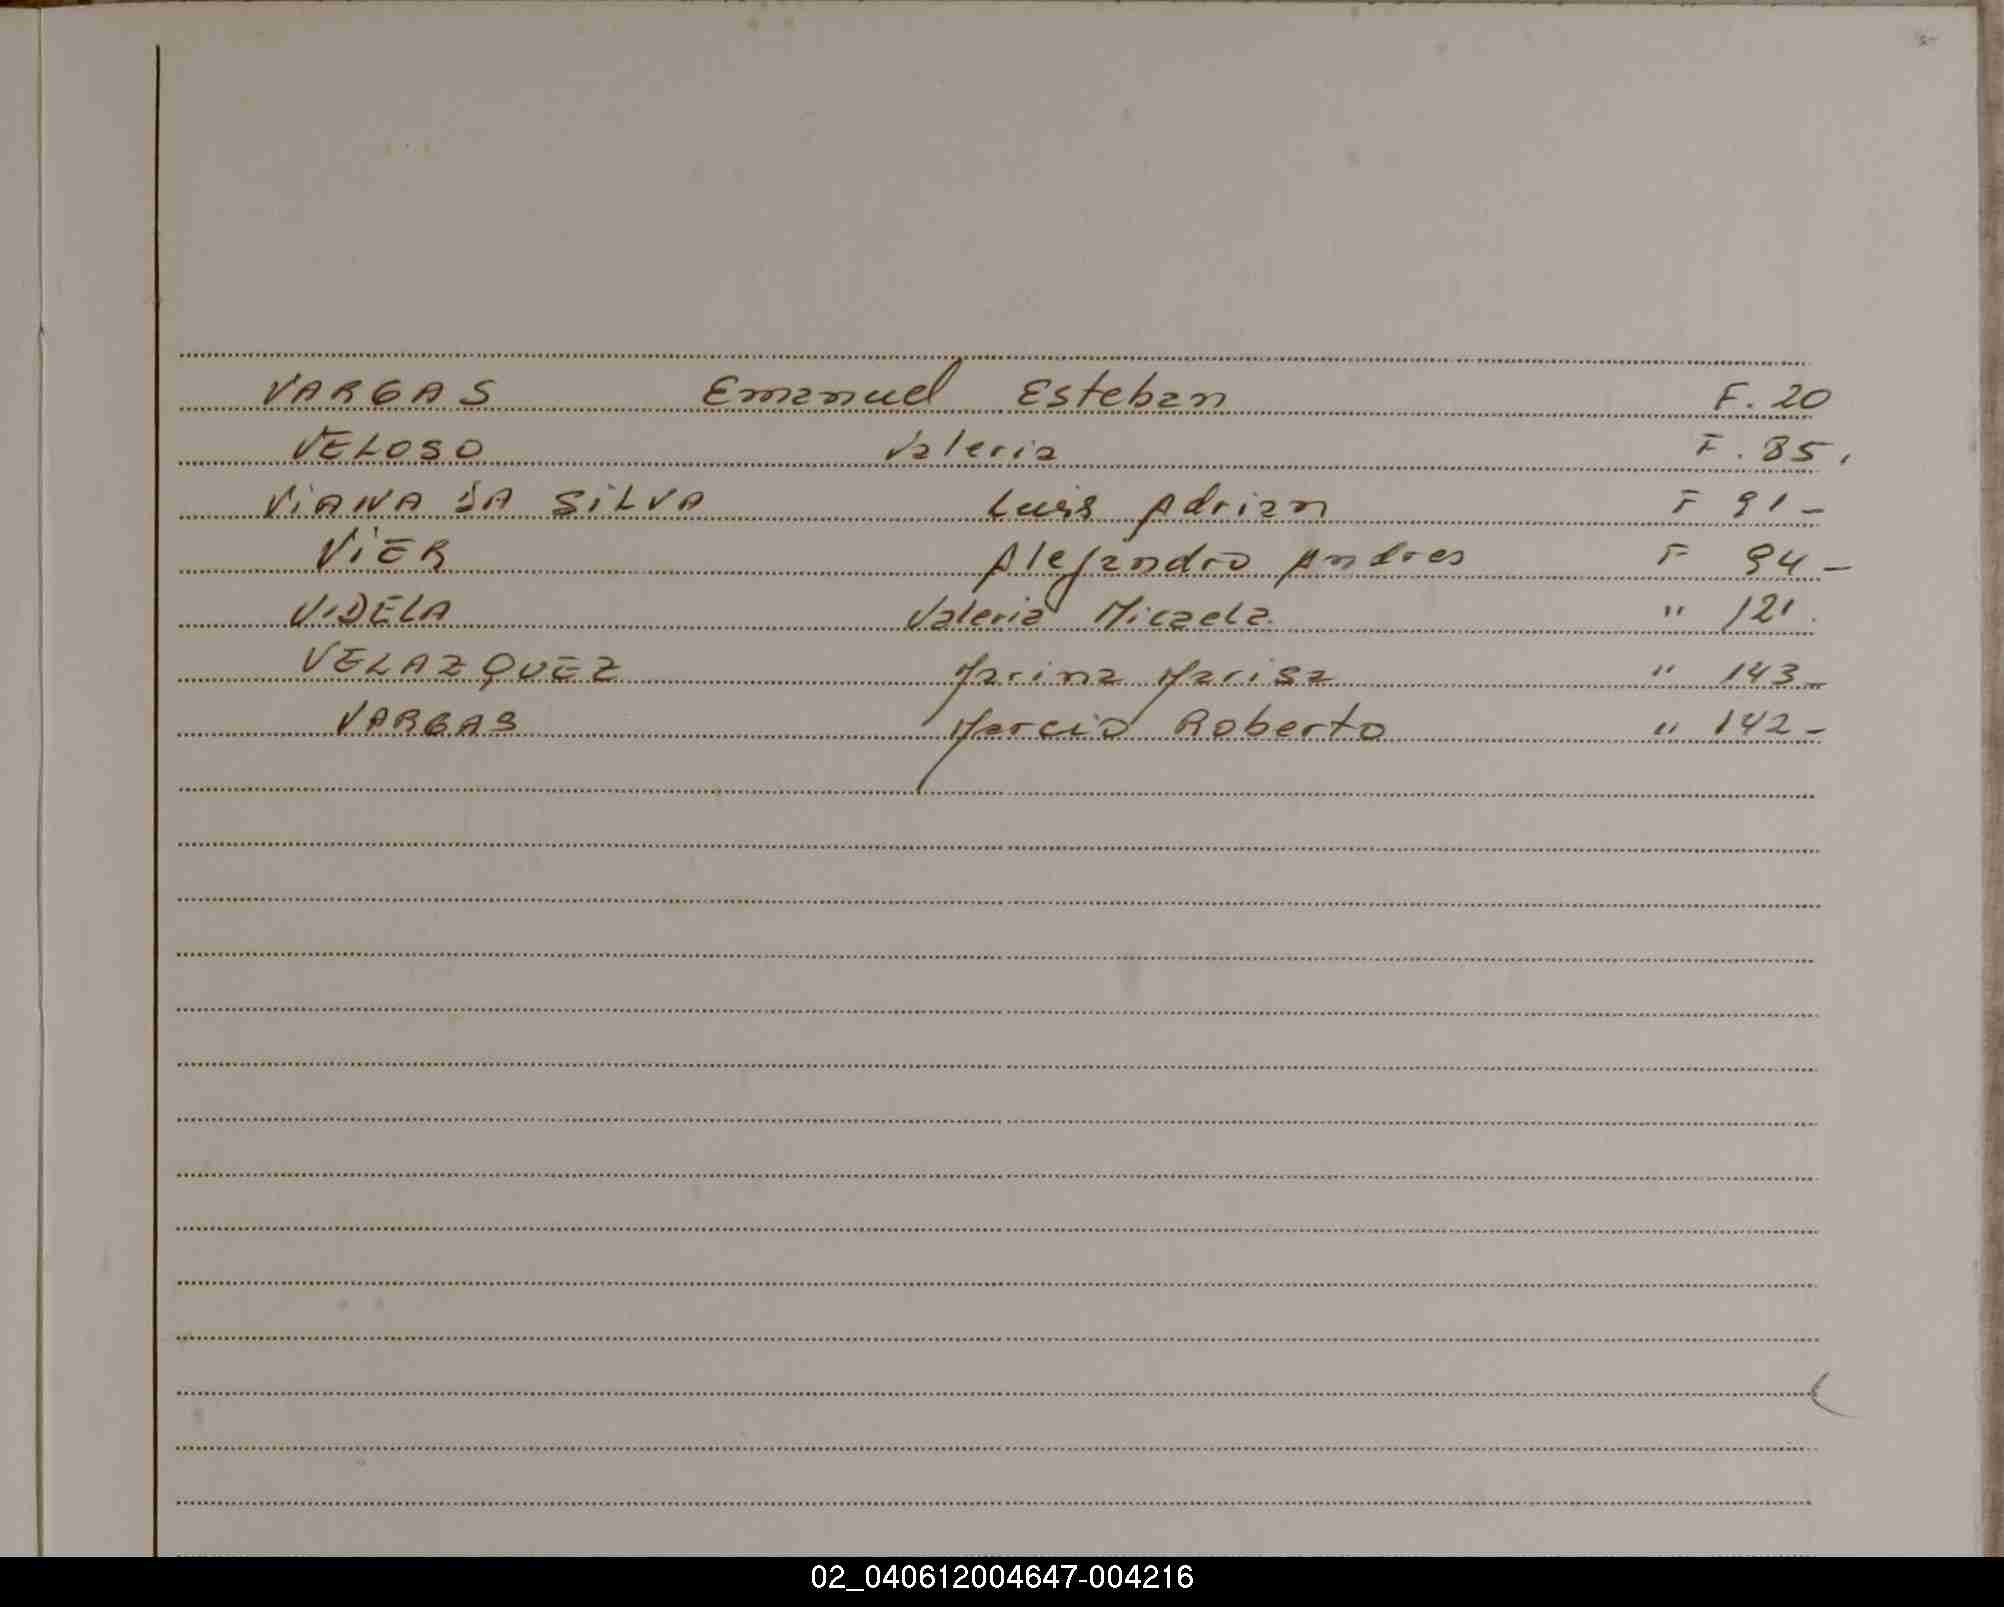 VARGAS Emanuel Esteban F. 20
VELOSO Valeria F. 85.
ViANA DA SiLVA Luis Adrian F 91-
ViER Alejandro Andres F 94-
ViDELA Valeria Micaela " 121.
VELAZQUEZ Marina Marisa " 143-
VARGAS Marcio Roberto " 142-
02_040612004647-004216